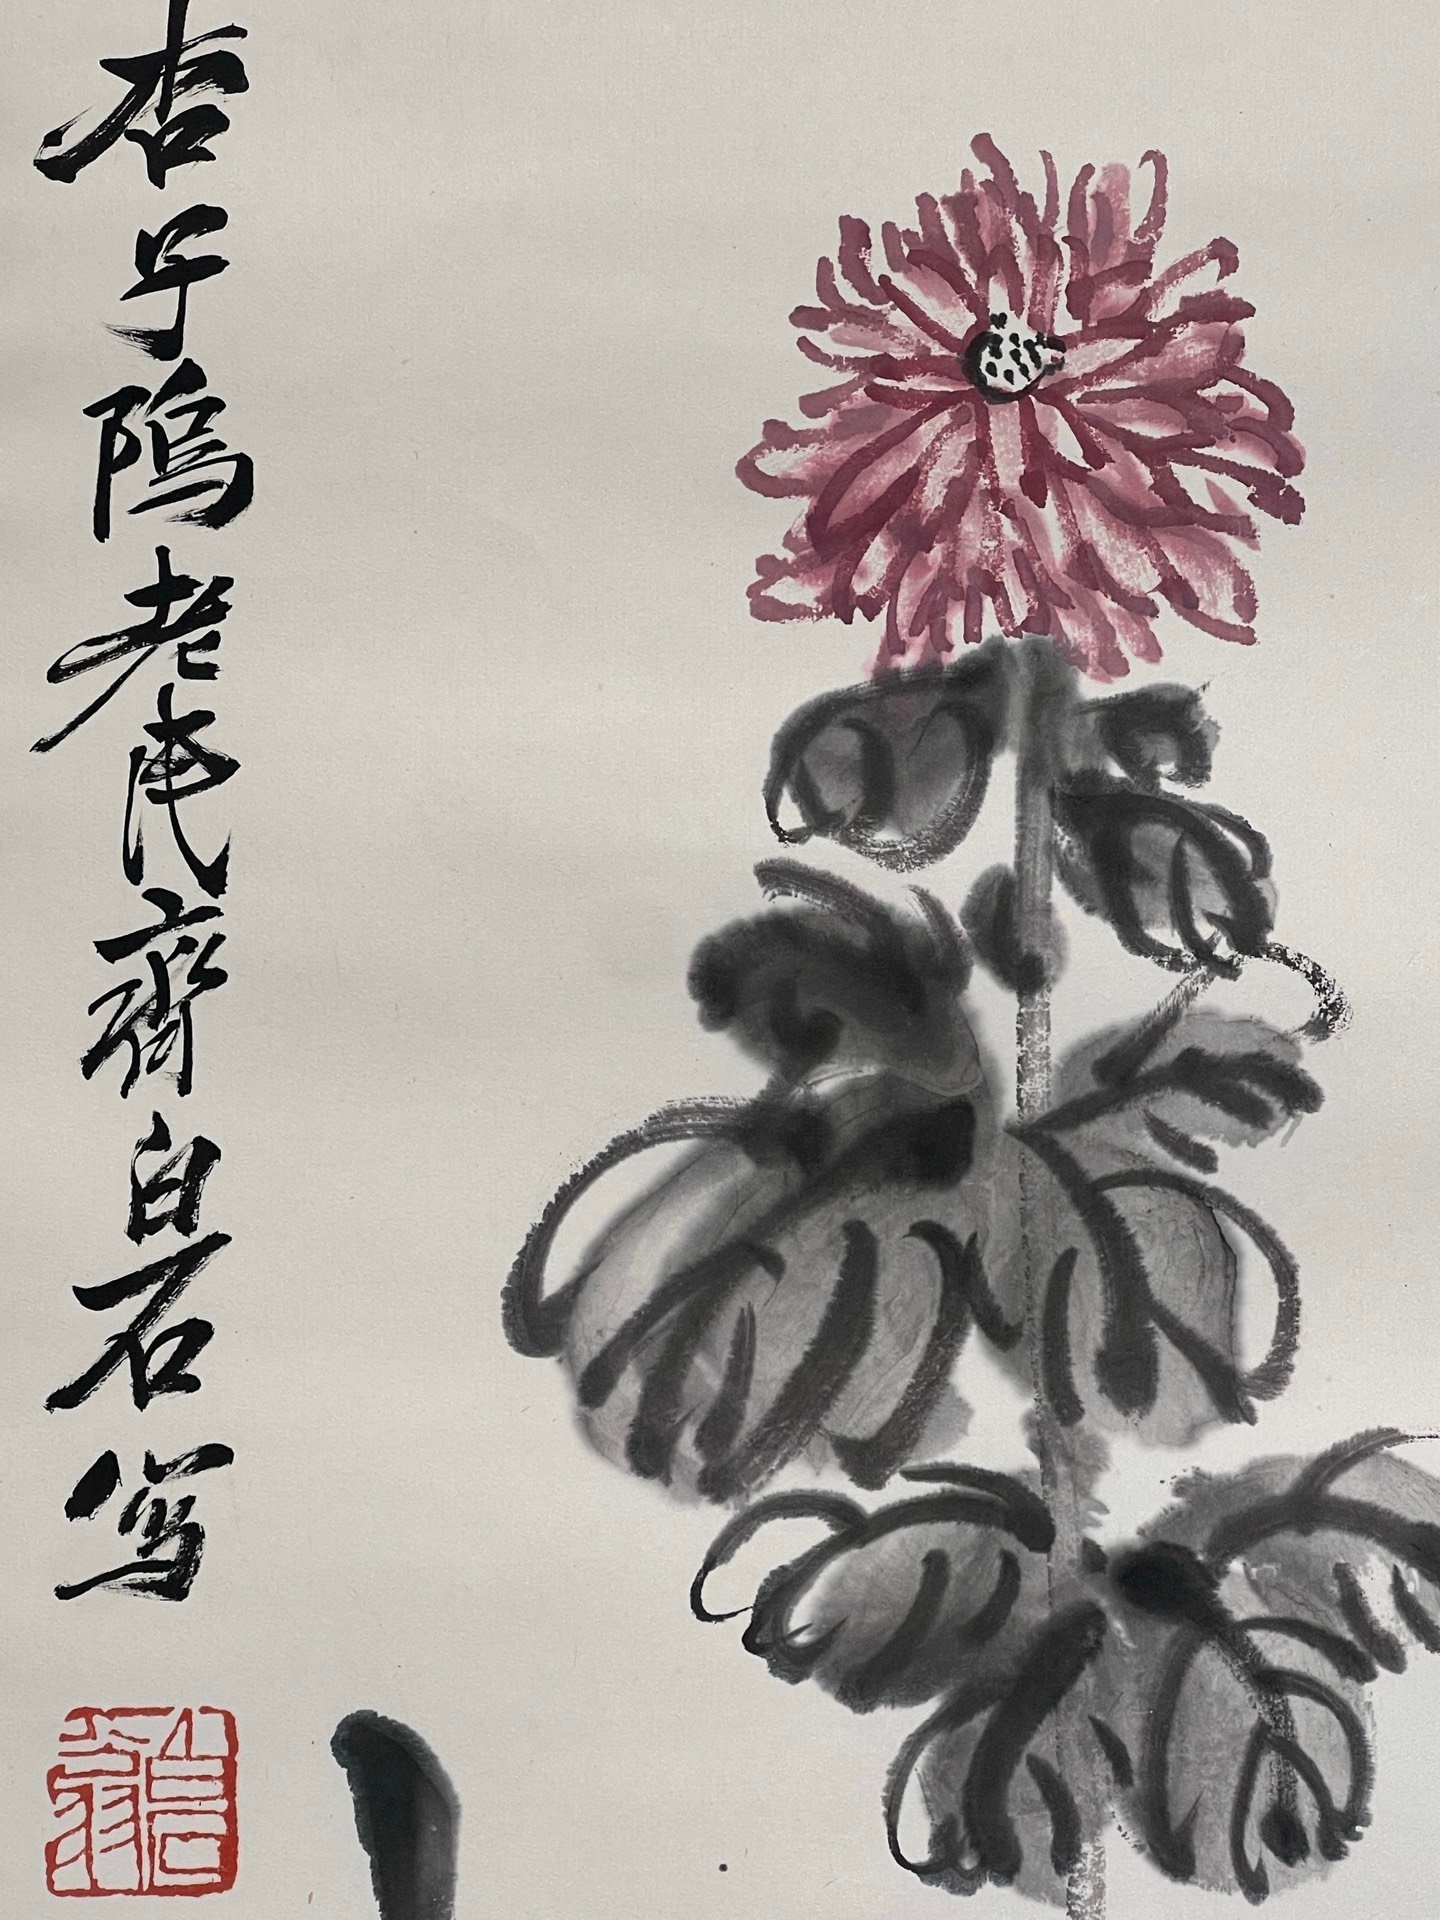 杏子隖老民齊白石写
白石翁